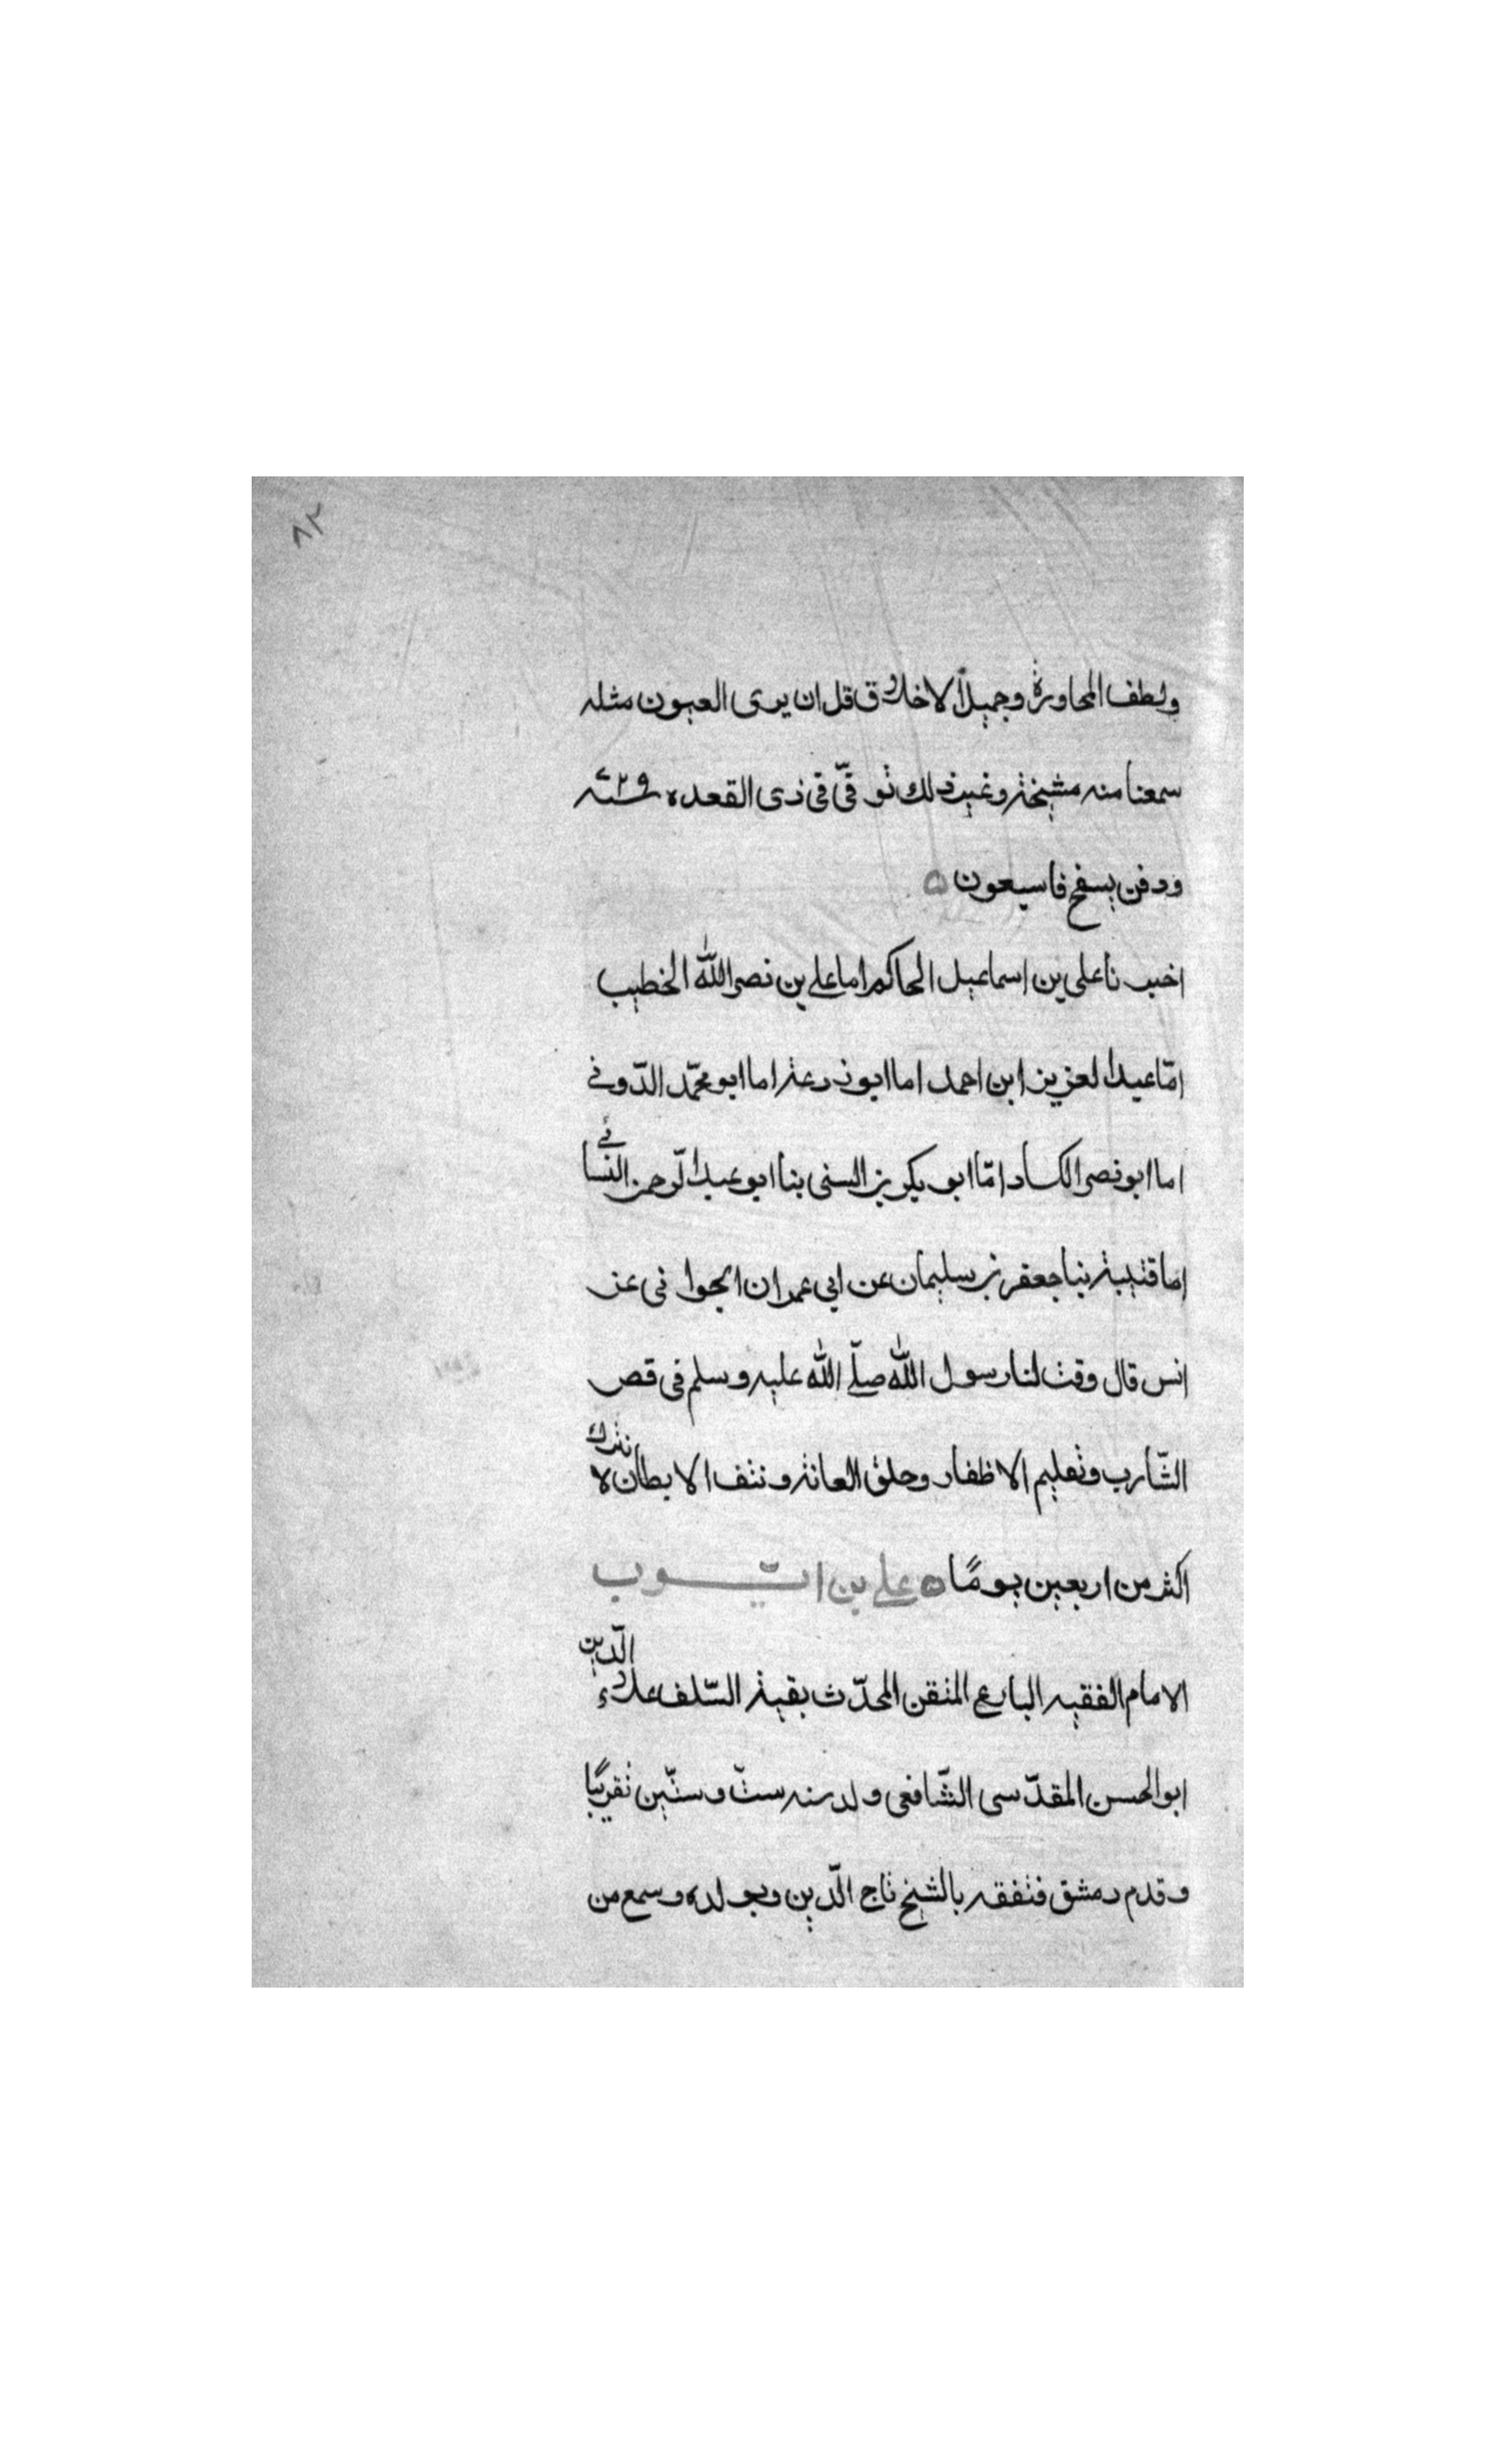 ٨٢
ولطف المحاورة وجميل الاخلاق قل ان يرى العيون مثله
سمعنا منه مشيخة وغير ذلك توفّى فى ذى القعده سنة ٧٢٩
ودفن بسفح قاسيعون ه
اخبرنا على بن اسماعيل الحاكم اما على بن نصر الله الخطيب
امّا عبد العزيز ابن احمد اما ابو زرعة اما ابو محمّد الدّونى
اما ابو نصر الكسار امّا ابو بكر بن السنى بنا ابو عبد الرّحمن النسائى
اما قتيبة بنا جعفر بن سليمان عن ابى عمران الجوانى عن
انس قال وقت لنا رسول الله صلّى الله عليه وسلم فى قص
الشّارب وتعليم الاظفار وحلق العانة ونتف الابط ان لا نترك
اكثر من اربعين يومًا ه على بن ايّوب
الامام الفقيه البارع المتقن المحدّث بقية السّلف علاء الدّين
ابو الحسن المقدّسى الشّافعى ولد سنه ستّ وستّين تقريبًا
وقدم دمشق فتفقه بالشيخ تاج الدّين وبولده وسمع من